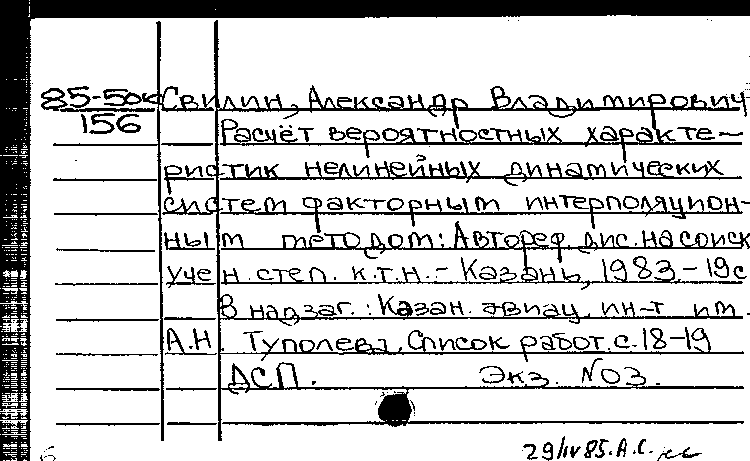 85-5ок Свилин, Александр Владимирович
156 Расчёт вероятностных характе-
ристик нелинейных динамических
систем факторным интерполяцион-
ным методом: Автореф. дис. на соиск
учен. степ. к.т.н. - Казань, 1983. - 19с
В надзаг.: Казан. авиац. ин-т им.
А.Н. Туполева. Список работ. с. 18-19
ДСП. Экз. №03.
29/IV 85. А.С.